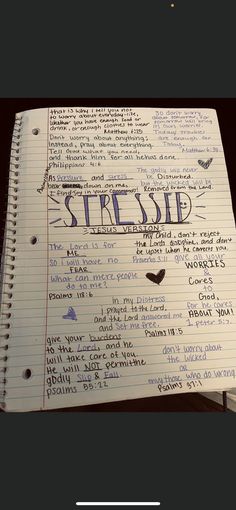 that is why I tell you not
to worry about everyday life,
whether you have enough food or
drink, or enough clothes to wear
Matthew 6:25
So don't worry
about tomorrow, for
tomorrow will bring
its own worries.
Today's trouble
are enough for
Today.
Matthew 6:34
Don't worry about anything;
Instead, pray about everything.
Tell God what you need,
and thank him for all he has done.
Philippians 4:6
The godly will never
be Disturbed,
but the wicked will be
removed from the Land.
As Pressure and Stress
bear down on me,
I find joy in your commands!
STRESSED
JESUS VERSION
The Lord is for
ME
So I will have no
FEAR.
What can mere people
do to me?
Psalms 118:6
my child, don't reject
the Lords discipline, and don't
be upset when he corrects you.
Proverbs 3:11
give all your
WORRIES
&
Cares
to
God,
for he cares
ABOUT YOU!
1 peter 5:7
In my Distress
I prayed to the Lord,
and the Lord answered me
and Set me free.
Psalms 118:5
give your burdens
to the Lord, and he
will take care of you.
He will NOT permit the
godly Slip & Fall.
psalms 55:22
don't worry about
the wicked
envy those who do wrong
psalms 37:1